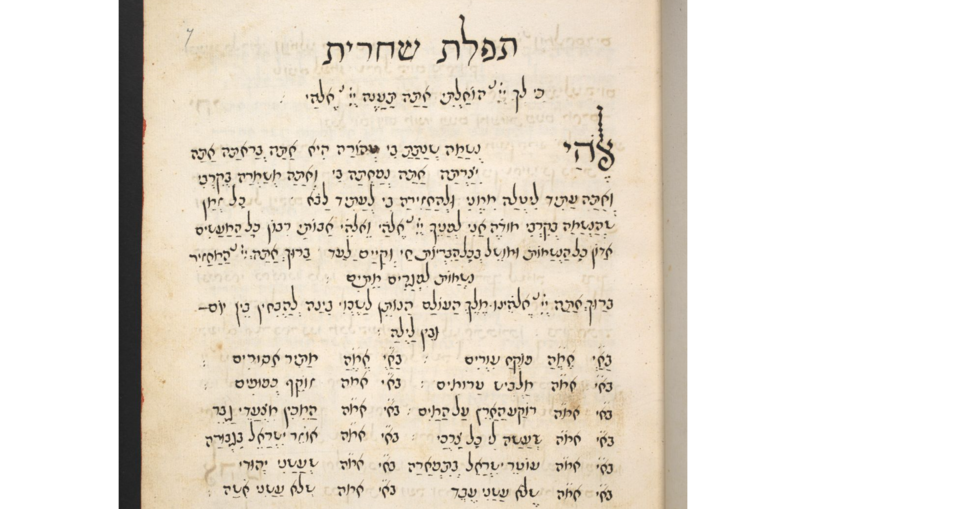 תפלת שחרית
כי לך יי הוחלתי אתה תענה יי אלהי
אלהי נשמה שנתת בי טהורה היא אתה בראתה אתה
יצרתה אתה נפחתה בי ואתה משמרה בקרבי
ואתה עתיד ליטלה ממני ולהחזירה בי לעתיד לבא כל זמן
שהנשמה בקרבי מודה אני לפניך יי אלהי ואלהי אבותי רבון כל המעשים
אדון כל הנשמות ומושל בכל הבריות חי וקיים לעד ברוך אתה יי המחזיר
נשמות לפגרים מתים
ברוך אתה יי אלהינו מלך העולם הנותן לשכוי בינה להבחין בין יום
ובין לילה
בא״י אמ״ה פוקח עורים : בא״י אמ״ה מתיר אסורים :
בא״י אמ״ה מלביש ערומים : בא״י אמ״ה זוקף כפופים
בא״י אמ״ה רוקע הארץ על המים : בא״י אמ״ה המכין מצעדי גבר
בא״י אמ״ה שעשה לי כל צרכי בא״י אמ״ה אוזר ישראל בגבורה
בא״י אמ״ה עוטר ישראל בתפארה בא״י אמ״ה שעשני יהודי
בא״י אמ״ה שלא עשני עבד בא״י אמ״ה שלא עשני אשה